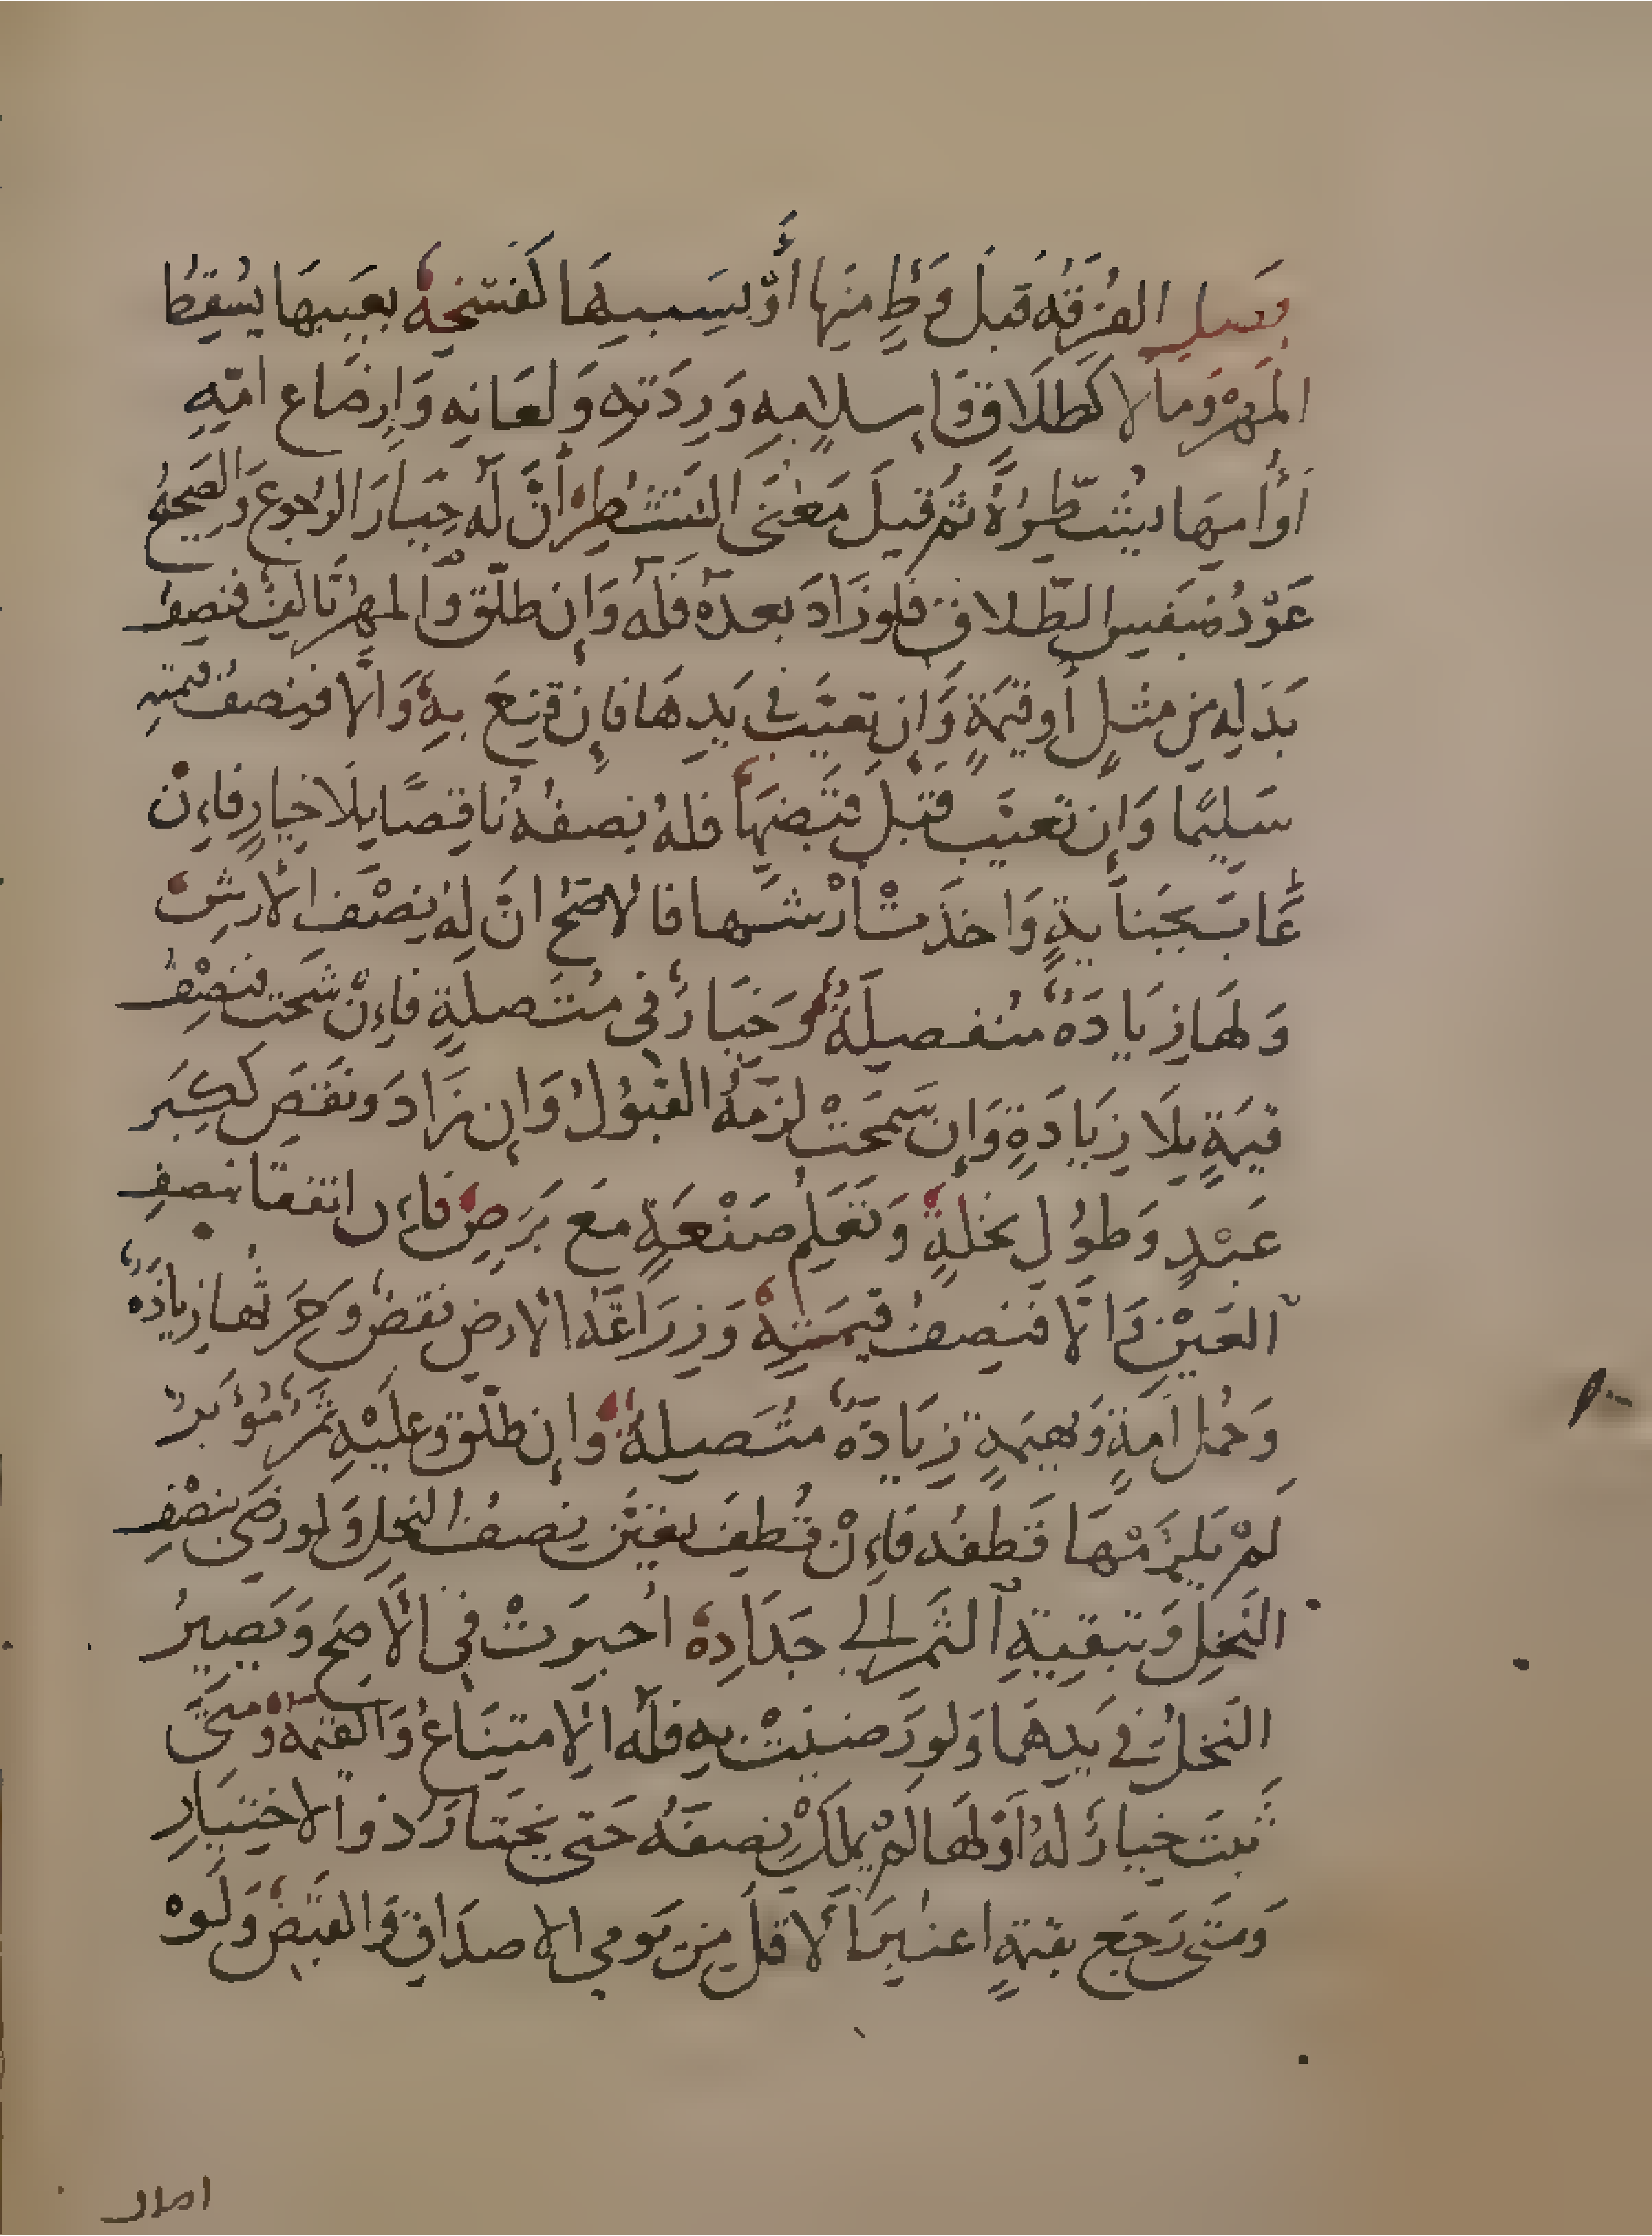 فصل الفُرْقَةُ قَبْلَ وَطْءٍ مِنْهَا أَوْ بِسَبَبِهَا كَفَسْخِهِ بِعَيْبِهَا يُسْقِطُ
المَهْرَ وَمَا لَا كَطَلَاقٍ وَإِسْلَامِهِ وَرِدَّتِهِ وَلِعَانِهِ وَإِرْضَاعِ أُمِّهِ
أَوْ أُمِّهَا يُشَطِّرُهُ ثُمَّ قِيلَ مَعْنَى التَّشْطِيرِ أَنَّ لَهُ خِيَارَ الرُّجُوعِ وَالصَّحِيحُ
عَوْدُهُ بِنَفْسِ الطَّلَاقِ فَلَوْ زَادَ بَعْدَهُ فَلَهُ وَإِنْ طَلَّقَ وَالمَهْرُ تَالِفٌ فَنِصْفُ
بَدَلِهِ مِنْ مِثْلٍ أَوْ قِيمَةٍ وَإِنْ تَعَيَّبَ فِي يَدِهَا فَإِنْ قَنِعَ بِهِ وَإِلَّا فَنِصْفُ قِيمَتِهِ
سَلِيمًا وَإِنْ تَعَيَّبَ قَبْلَ قَبْضِهَا فَلَهُ نِصْفُهُ نَاقِصًا بِلَا خِيَارٍ فَإِنْ
عَابَ بِجِنَايَةٍ وَأَخَذَتْ أَرْشَهَا فَالأَصَحُّ أَنَّ لَهُ نِصْفَ الأَرْشِ
وَلَهَا زِيَادَةٌ مُنْفَصِلَةٌ وَخِيَارٌ فِي مُتَّصِلَةٍ فَإِنْ شَحَّتْ فَنِصْفُ
قِيمَةٍ بِلَا زِيَادَةٍ وَإِنْ سَمَحَتْ لَزِمَهُ القَبُولُ وَإِنْ زَادَ وَنَقَصَ كَكِبَرِ
عَبْدٍ وَطُولِ نَخْلَةٍ وَتَعَلُّمِ صَنْعَةٍ مَعَ بَرَصٍ فَإِنِ اتَّفَقَا بِنِصْفِ
العَيْنِ وَإِلَّا فَنِصْفُ قِيمَتِهِ وَزِرَاعَةُ الأَرْضِ نَقْصٌ وَحَرْثُهَا زِيَادَةٌ
وَحَمْلُ أَمَةٍ وَبَهِيمَةٍ زِيَادَةٌ مُتَّصِلَةٌ وَإِنْ طَلَّقَ وَعَلَيْهِ ثَمَرٌ مُؤَبَّرٌ
لَمْ يَلْزَمْهَا قَطْفُهُ فَإِنْ قُطِفَ تَعَيَّنَ نِصْفُ النَّخْلِ وَلَوْ رَضِيَ بِنِصْفِ
النَّخْلِ وَتَبْقِيَةِ الثَّمَرِ إِلَى جَدَادِهِ أُجْبِرَتْ فِي الأَصَحِّ وَيَصِيرُ
النَّخْلُ فِي يَدِهِمَا وَلَوْ رَضِيَتْ بِهِ فَلَهُ الِامْتِنَاعُ وَالقِيمَةُ وَمَتَى
ثَبَتَ خِيَارٌ لَهُ أَوْ لَهَا لَمْ يَمْلِكْ نِصْفَهُ حَتَّى يَخْتَارَ ذُو الِاخْتِيَارِ
وَمَتَى رَجَعَ بِقِيمَةٍ اعْتُبِرَ الأَقَلُّ مِنْ يَوْمَيِ الإِصْدَاقِ وَالقَبْضِ وَلَوْ